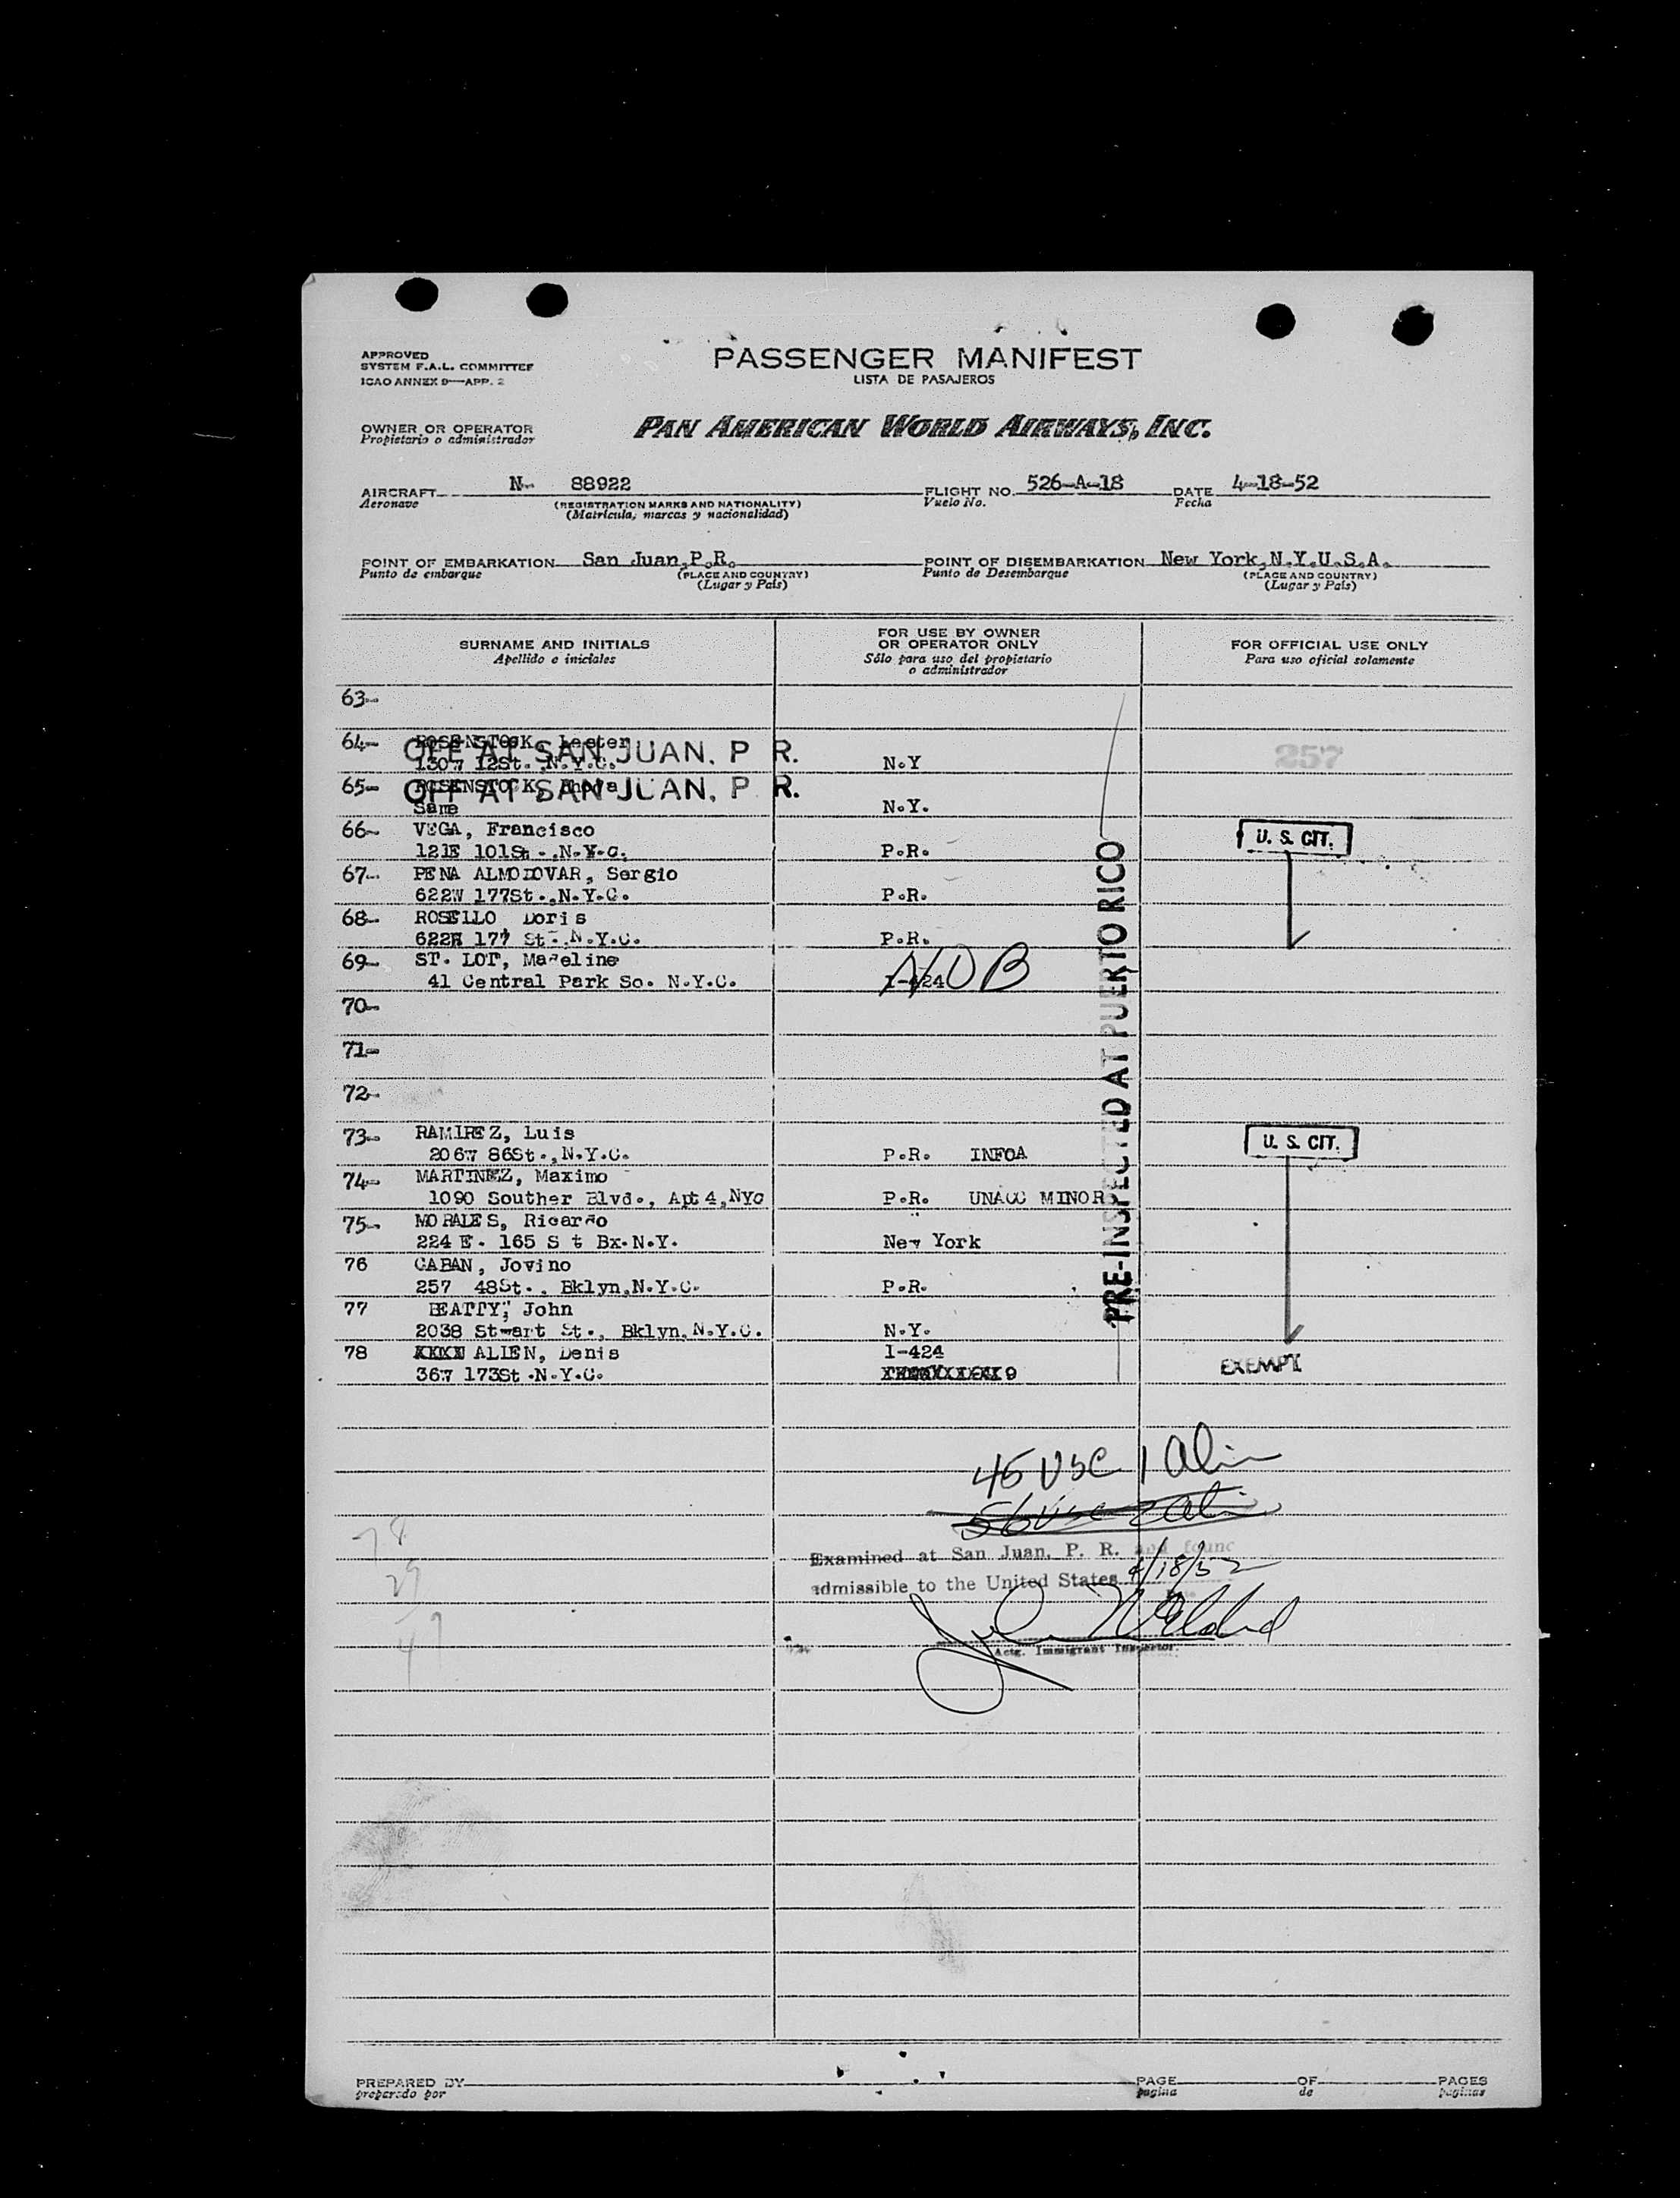 APPROVED
SYSTEM F.A.L. COMMITTEE
ICAO ANNEX 9—APP. 2
PASSENGER MANIFEST
LISTA DE PASAJEROS
OWNER OR OPERATOR
Propietario o administrador
PAN AMERICAN WORLD AIRWAYS, INC.
AIRCRAFT N- 88922 FLIGHT NO. 526-A-18 DATE 4-18-52
Aeronave (REGISTRATION MARKS AND NATIONALITY) Vuelo No. Fecha
(Matrícula, marcas y nacionalidad)
POINT OF EMBARKATION San Juan,P.R. POINT OF DISEMBARKATION New York,N.Y.U.S.A.
Punto de embarque (PLACE AND COUNTRY) Punto de Desembarque (PLACE AND COUNTRY)
(Lugar y País) (Lugar y País)
SURNAME AND INITIALS
Apellido e iniciales
FOR USE BY OWNER
OR OPERATOR ONLY
Sólo para uso del propietario
o administrador
FOR OFFICIAL USE ONLY
Para uso oficial solamente
63-
64- ROSENSTOCK, Lester
OFF AT SAN JUAN, P R. 257
12St. N.Y.C. N.Y
65- ROSENSTOCK,
OFF AT SAN JUAN, P. R.
Same N.Y.
66- VEGA, Francisco U. S. CIT.
121E 101St.,N.Y.C. P.R.
67- PENA ALMODOVAR, Sergio
622W 177St.,N.Y.C. P.R.
68- ROSELLO Doris
177 St. N.Y.C. P.R.
69- ST. LOT, Madeline NOB
41 Central Park So. N.Y.C. I-424
70-
71-
72-
73- RAMIREZ, Luis U. S. CIT.
86St.,N.Y.C. P.R. INFOA
74- MARTINEZ, Maximo
1090 Souther Blvd., Apt 4,NYC P.R. UNACC MINOR
75- MORALES, Ricardo
224 E. 165 S t Bx.N.Y. New York
76 CABAN, Jovino
257 48St., Bklyn,N.Y.C. P.R.
77 BEATTY, John
2038 Stwart St., Bklyn,N.Y.C. N.Y.
78 ALIEN, Denis I-424
173St.N.Y.C. EXEMPT
PRE-INSPECTED AT PUERTO RICO
45 USC 1 Alien
56 USC 2 Alien
78
29
49
Examined at San Juan, P. R. and found
admissible to the United States 4/18/52
Actg. Immigrant Inspector.
PREPARED BY PAGE OF PAGES
preparado por pagina de paginas